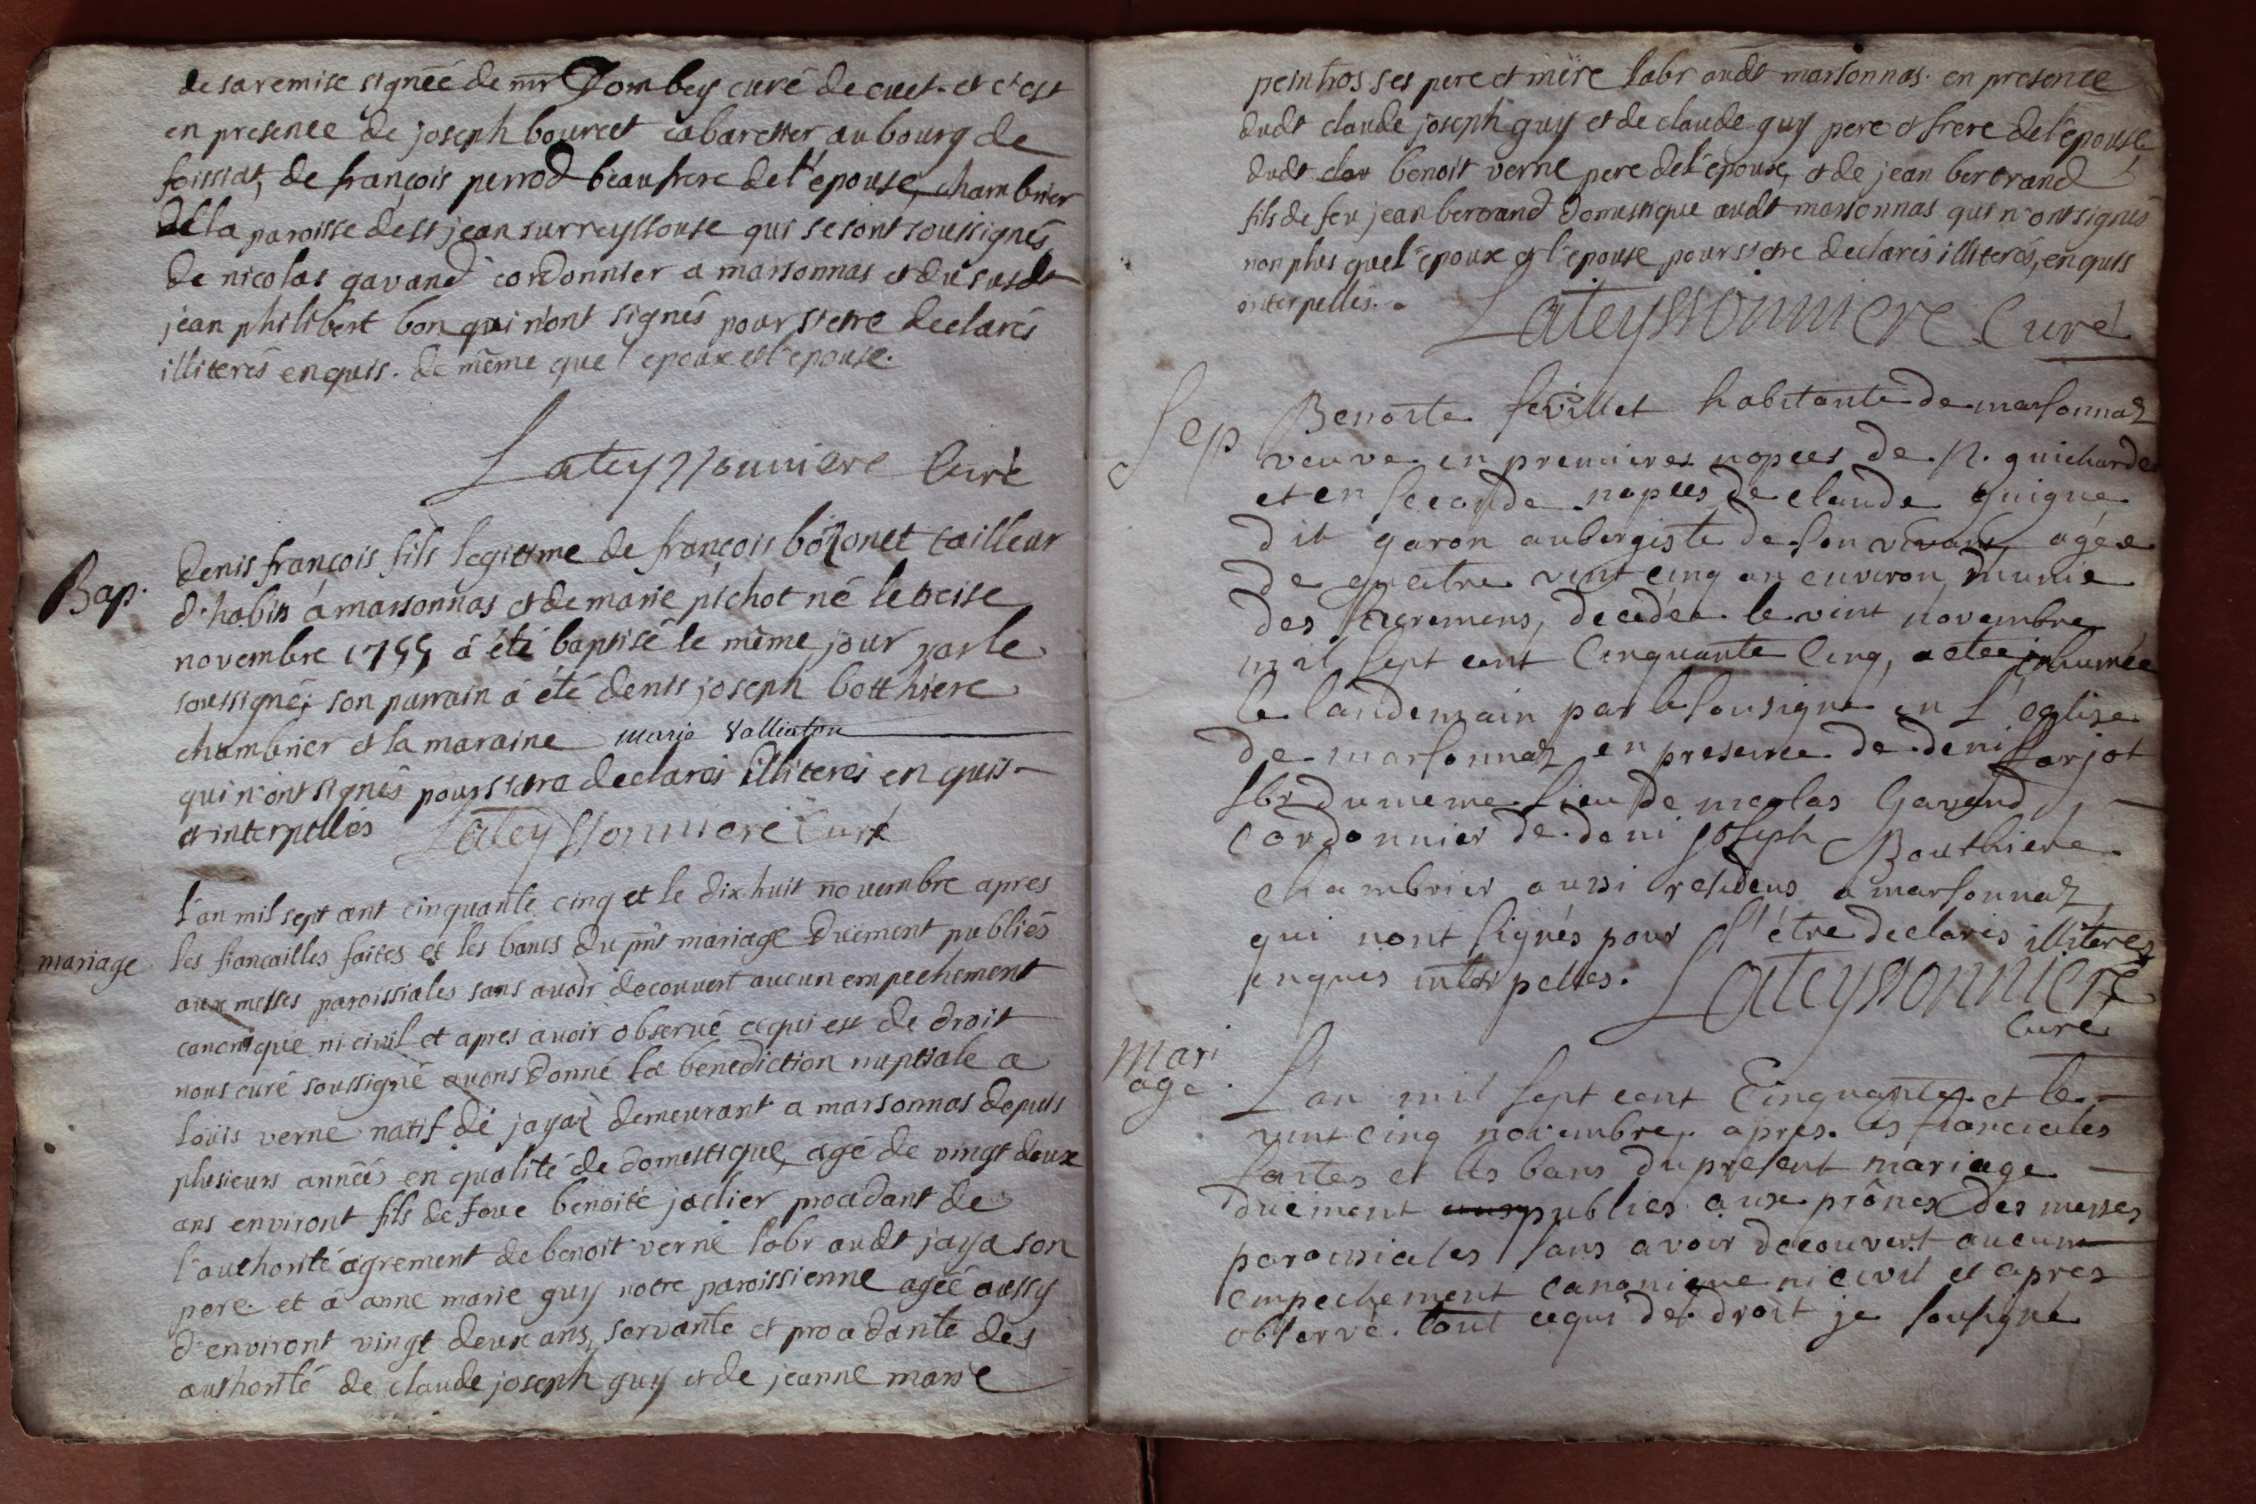 de sa remise signéé de mr Dombey curé de cuet. et c'est
en presence de joseph bourcet cabaretier au bourg de
foissiat, de françois perrod beaufrere de l'épouse, chambrier
de la paroisse de st jean sur reyssouse qui se sont soussignés,
de nicolas gavand cordonnier a marsonnas et du susdt
jean philibert bon qui n'ont signés pour s'etre declarés
illiterés enquis. de même que l'epoux et l'epouse.
Lateyssonniere Curé
Bap.
denis françois fils legitime de françois bozonet tailleur
d'habits á marsonnas et de marie pichot né le treise
novembre 1755 á été baptisé le même jour par le
soussigné; son parrain á été denis joseph botthiere
chambrier et la maraine marie Valliaton
qui n'ont signés pour s'etre declarés illiterés enquis
et interpellés Lateyssonniere Curé
mariage
l'an mil sept cent cinquante cinq et le dix huit novembre apres
les fiancailles faites et les bancs du pnt mariage duement publiés
aux messes paroissiales sans avoir decouvert aucun empechement
canonique ni civil et apres avoir observé ce qui est de droit
nous curé soussigné avons donné la benediction nuptiale a
louis verne natif de jayat demeurant a marsonnas depuis
plusieurs années en qualité de domestique, agé de vingt deux
ans environt fils de feue benoite joclier procedant de
l'authorité agrement de benoit verne labr audt jaya son
pere. et á anne marie guy notre paroissienne agéé aussy
d'environt vingt deux ans, servante et procedante des
authorité de claude joseph guy et de jeanne marie
peintros ses pere et mere labr audt marsonnas. en presence
dudt claude joseph guy et de claude guy pere et frere de l'épouse,
dudt clau benoit verne pere de l'epoux, et de jean bertrand
fils de feu jean bertrand domestique audt marsonnas qui n'ont signés
non plus que l'epoux et l'epouse pour s'etre declarés illiterés, enquis
interpellés. Lateyssonniere Curé
Sep
Benoite feuillet habitante de marsonnaz
veuve en premieres nopces de N. guicharde
et en seconde nopces de claude guigue
dit garon aubergiste de son vivant, agée
de quatre vint cinq an environ, munie
des sacremens, decedée le vint novembre
mil sept cent Cinquante Cinq, a eté inhumée
le landemain par le sousigné en l'eglise
de marsonnaz en presence de deni farjot
lbr du meme lieu de nicolas Gavand
cordonnier de deni joseph Bouthiere
chambrier aussi residens a marsonnaz
qui nont signés pour s'étre declarés illiteres
enquis interpelles. Lateyssonniere
Curé
Mari
age.
L'an mil sept cent Cinquante et le
vint cinq novembre, apres les fiancailes
faites et les bans du present mariage
duement publies aux prônes des messes
paroissiales sans avoir decouvert aucun
empechement canonique ni civil et apres
observé tout ce qui de droit je sousigné